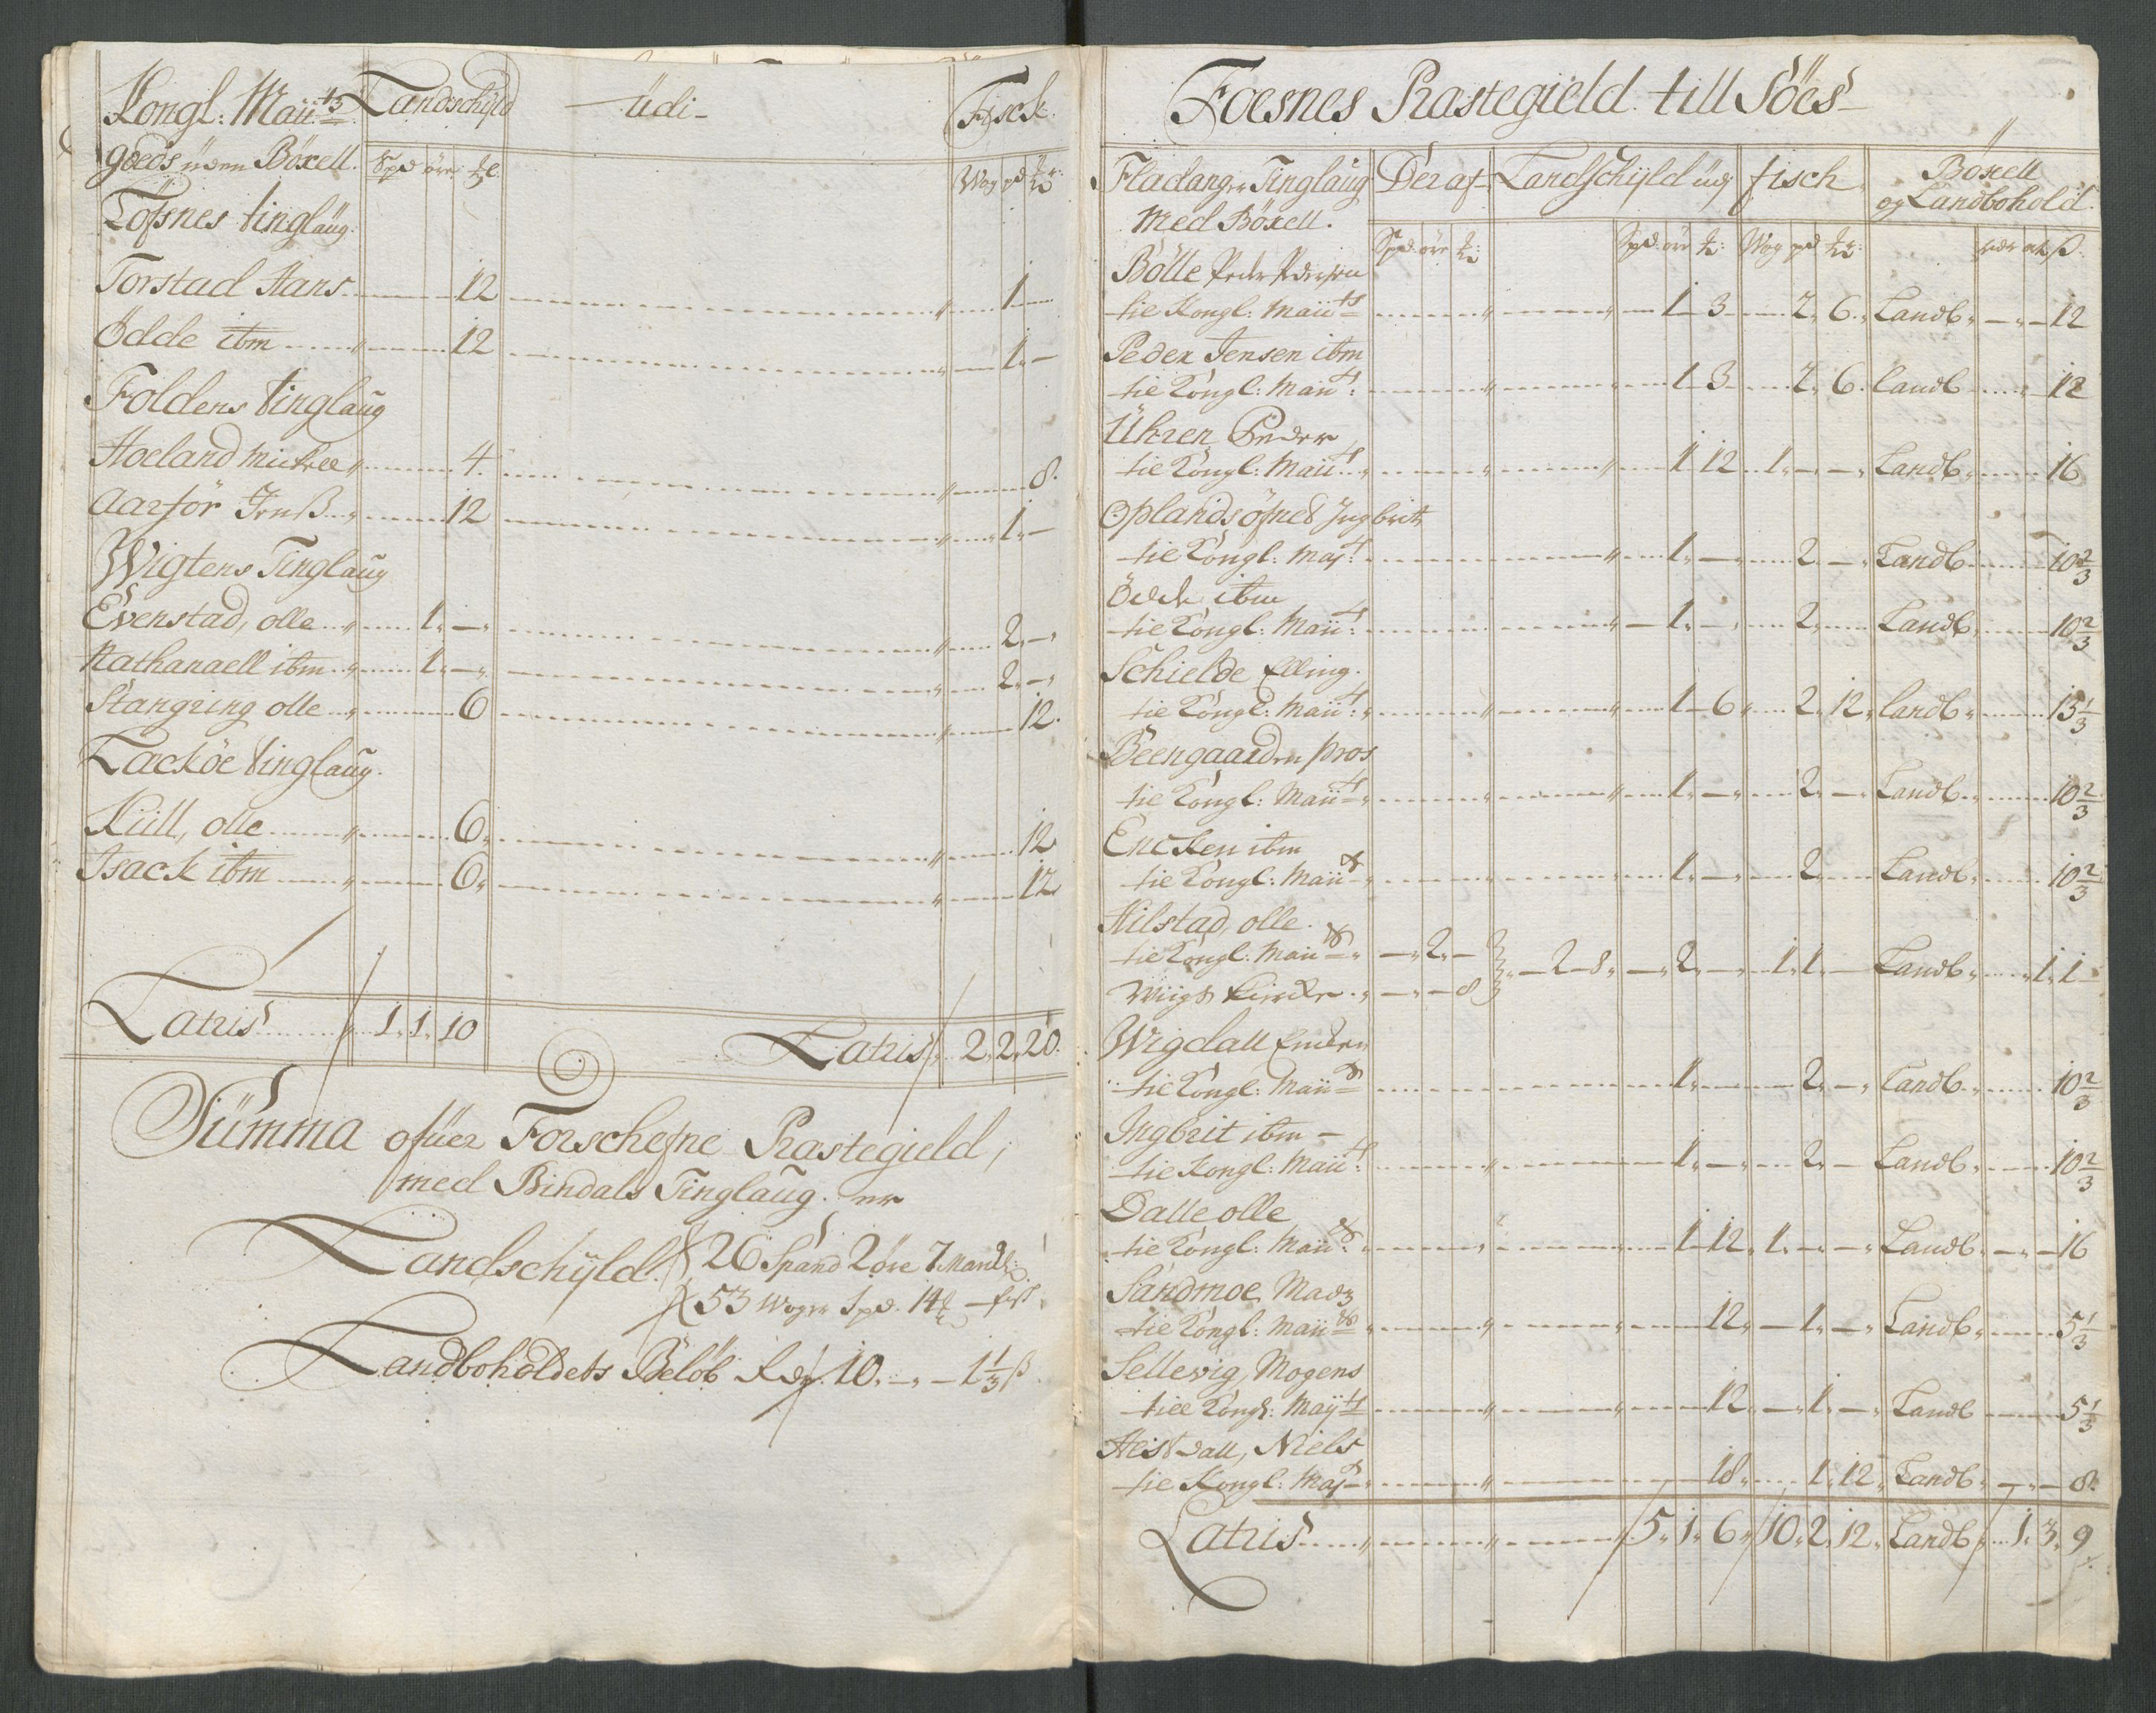 Kongl: Maii:ts Landschÿld üdi Fisck.
goeds üden Böxell. Spd öre
Wog pd
Fosnes tinglaug.
Torstad Hans 12 1
Odde ibm 12 1 -
Folders tinglaug
Hoeland Mickel 4. 8.
Aarför Jenß 12 1 -
Wigtens Tinglaug
Evenstad, olle 1 - 2 -
Nathanaell ibm 1 - 2 -
Stangring olle 6 12.
Lacköe tinglaug.
Küll, olle 6 12
Isack ibm 6 12
Latris 1. 1. 10 Latris 2. 2. 20.
Sümma ofüer Forschefne Præstegield,
med Bindals Tinglaug. er
Landschÿld. 26 Spand 2 öre 7 Markl:
53 Woger 1 pd. 14 - fisk
Landboholdets Beløb Rdr. 10. - - 1 1/3 ß.
Foesnes Præstegield till Söes
Fladangr Tinglaug Der af Landschÿld üdj fisch Böxell
Med Böxell. og Landbohold.
Spd. öre Spd. öre Wog pd ß.
Bölle Peder Pedersen
tie Kongl: Maii:ts 1 3 2. 6. Landb. 12
Peder Jensen ibm
tie Kongl: Maiit: 1 3 2. 6. Landb 12
Uhren Peder
tie Kongl: Maiit. 1 12 1. - - Landb. 16
Oplandsöfned Jngbrit
tie Kongl: Majt 1. - 2. - Landb 10 2/3
Odde ibm
tie Kongl: Maiit: 1. - 2. Landb. 10 2/3
Schielde Elling.
tie Kongl: Maiit: 1 6 2. 12. Landb. 13 1/3
Beengaarden pros
tie Kongl: Maiit 1. - 2. - Landb. 10 2/3
Encken ibm
tie Kongl: Maii 1. - 2. Landb. 10 2/3
Hilstad, olle.
tie Kongl: Maii - 2. - 2 8. - 2. - 1. 1. - Landb. 1. 1
Wiigs Kircke. - - 8
Wigdall Encken
tie Kongl: Maii 1. 2. - Landb. 10 2/3
Ingbrit ibm -
tie Kongl: Maiit: 1. - 2. - Landb. 10 2/3
Dalle olle
tie Kongl: Maii 1 12. 1. - - Landb. 16
Sandmoe Mads
tie Kongl: Maii 12. - 1. - Landb. 5 1/3
Sellevig, Mogens
till Kongl: Maijts 12. - 1. - Landb 5 1/3
Heistdall, Niels
tie Kongl: Maj 18. 1. 12. Landb. 8.
Latris 5. 1. 6. 10. 2. 12. Landb. 1. 3. 9